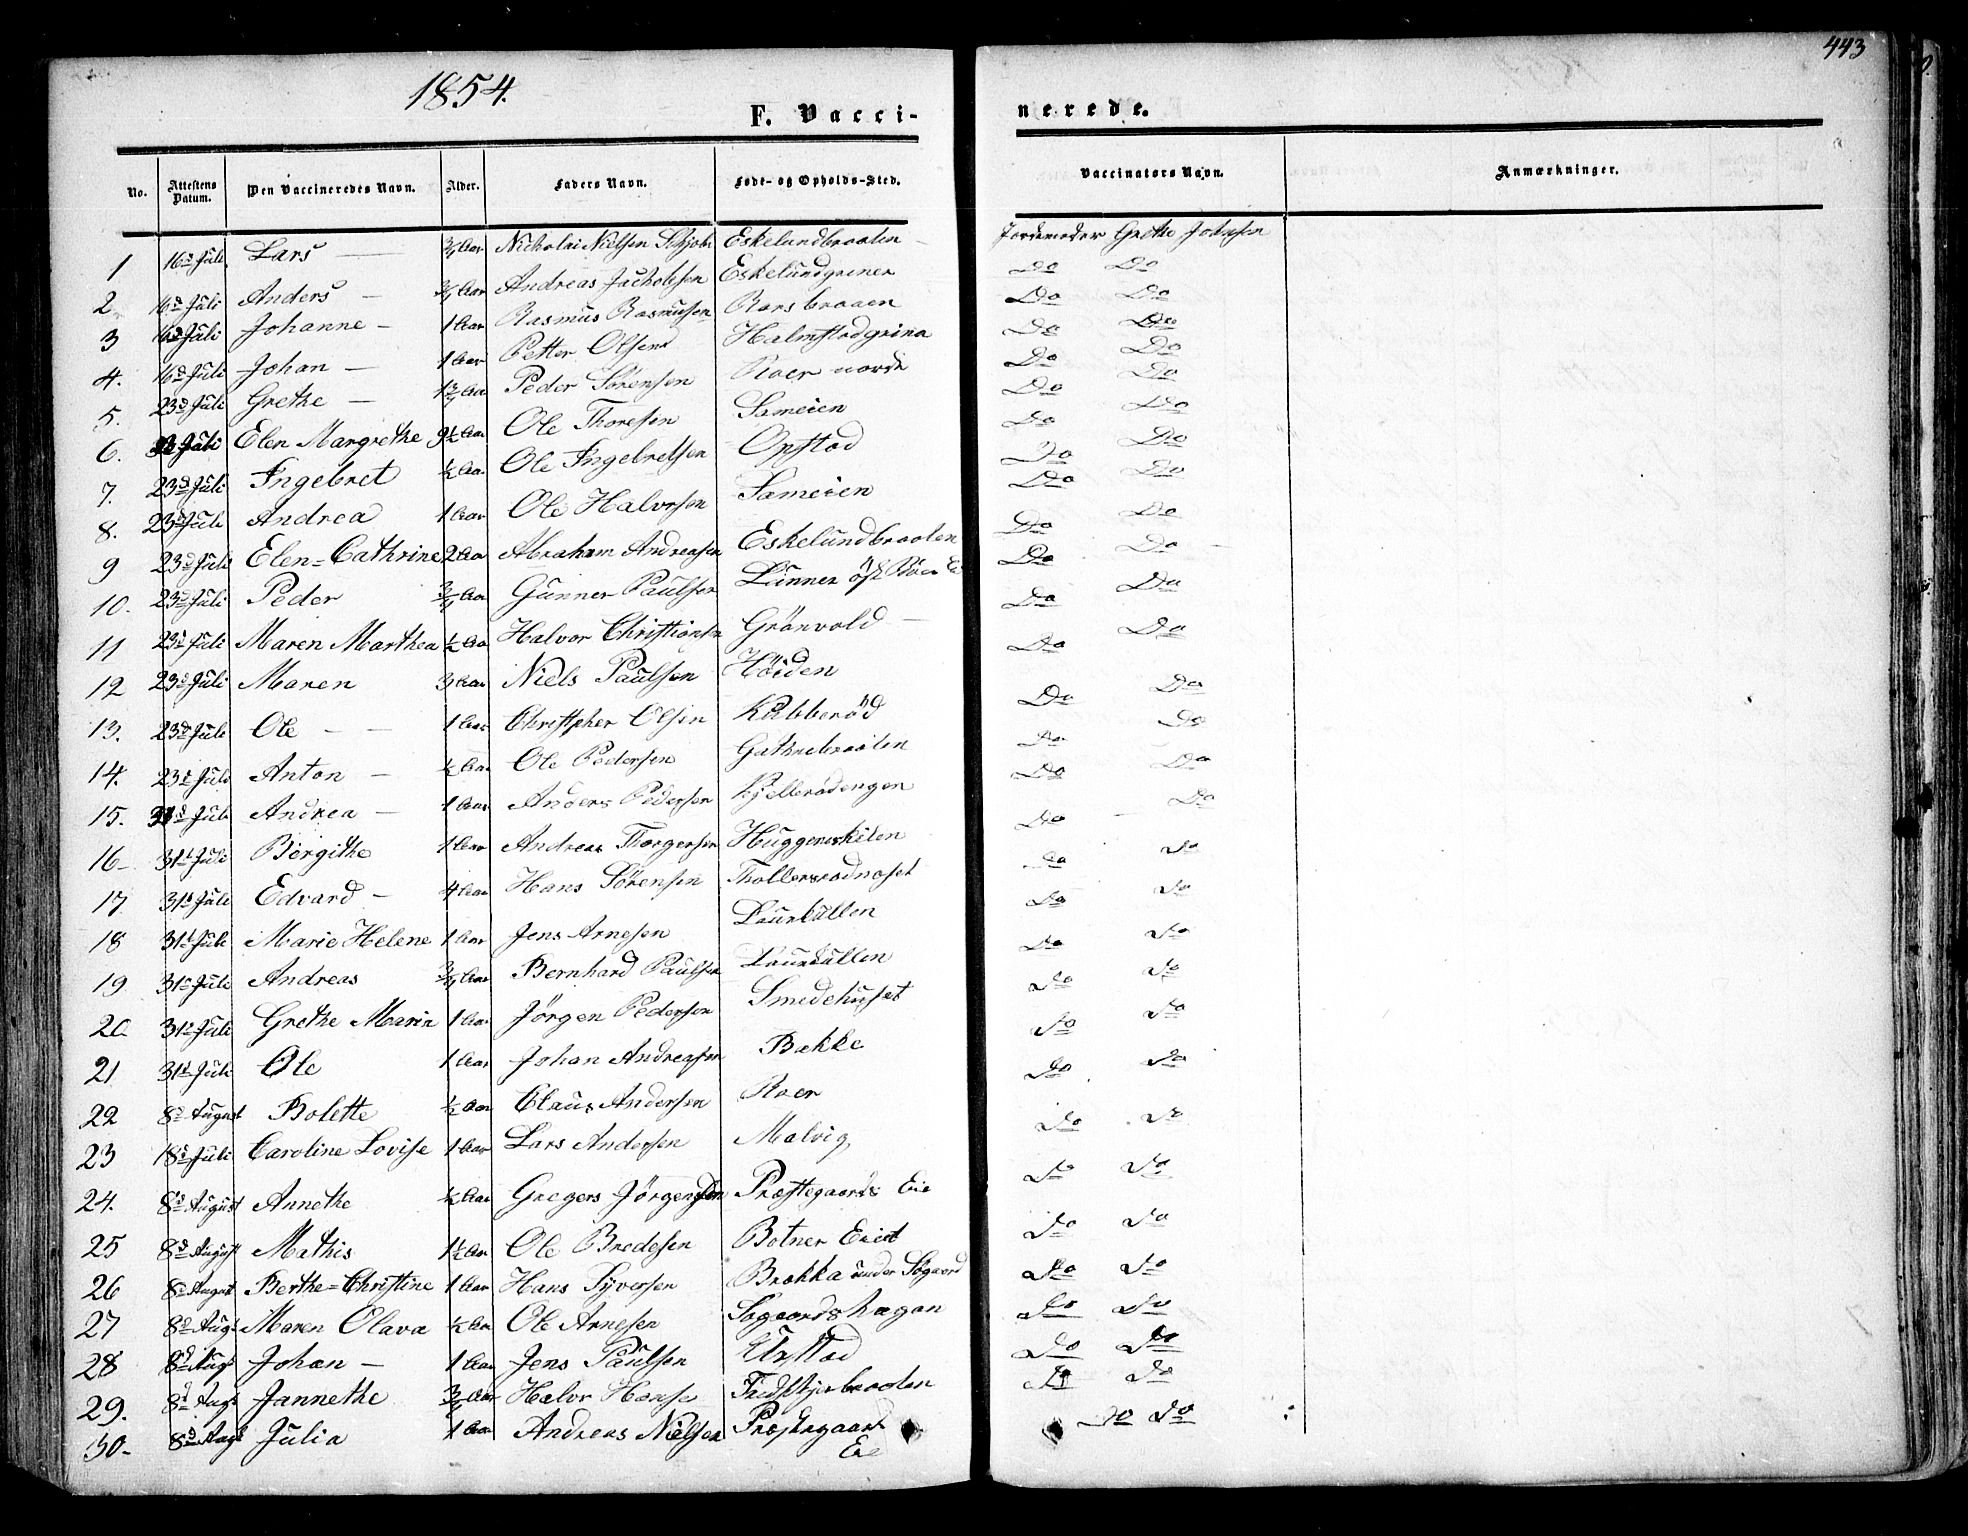 443
1854.
F. Vaccinerede.
No. Attestens Datum. Den Vaccineredes Navn. Alder. Faders Navn. Føde- og Opholds-Sted. Vaccinators Navn. Anmærkninger.
1 16d Juli Lars — 3/4 Aar Nicholai Nielsen Eskelundbraaten Jordemoder Grethe Johnsen
2 16d Juli Anders — 3/4 Aar Andreas Jachobsen Eskelundgrinen Do Do
3 16d Juli Johanne — 1 Aar Rasmus Rasmusen Do Do
4. 16d Juli Johan — 1 Aar Petter Olsen Halmstadgrina Do Do
5. 23d Juli Grethe — Aar Peder Sörensen Roer nordre Do Do
6. Juli Elen Margrethe 9½ Aar Ole Thoresen Sameien Do Do
7. 23d Juli Ingebret ½ Aar Ole Ingebretsen Opstad Do Do
8. 23d Juli Andrea 1 Aar Ole Halvorsen Sameien Do Do
9 23d Juli Elen=Cathrine 2 Aar Abraham Andreasen Eskelundbraaten Do Do
10. 23d Juli Peder 3/4 Aar Gunner Paulsen Do Do
11 23d Juli Maren Marthea ½ Aar Halvor Christiansen Grönvold — Do Do
12 23d Juli Maren 3 Aar Niels Paulsen Höiden Do Do
13. 23d Juli Ole — — 1 Aar Christpher Olsen Kubberöd Do Do
14. 23d Juli Anton — ½ Aar Ole Pedersen Do Do
15. 31d Juli Andrea — 1 Aar Anders Pedersen Kjellerödengen Do Do
16 31d Juli Birgithe 1 Aar Andreas Thorgersen Huggeneskilen Do Do
17 31d Juli Edvard — 4 Aar Hans Sörensen Do Do
18 31d Juli Marie Helene 1 Aar Jens Arnesen Laurkullen Do Do
19 31d Juli Andreas 3/4 Aar Bernhard Paulsen Laurkullen Do Do
20 31d Juli Grethe Marie 1 Aar Jörgen Pedersen Smedehuset Do Do
21 31d Juli Ole 1 Aar Johan Andreasen Bakke Do Do
22 8d August Bolette ½ Aar Claus Andersen Roer Do Do
23 18d Juli Caroline Lovise 1 Aar Lars Andersen Malvig Do Do
24. 8d August Annethe ½ Aar Gregers Jörgensen Præstegaards Eie Do Do
25 8d August Mathis 1½ Aar Ole Bredesen Botner Eiet Do Do
26 8d August Berthe=Christine 1 Aar Hans Syversen Brækka under Sögaard Do Do
27 8d Augs Maren Olava ½ Aar Ole Arnesen Sogaardshagan Do Do
28 8d Augs Johan — 1 Aar Jens Paulsen Do Do
29. 8d Augs Jannethe 3/4 Aar Halvor Hansen Do Do
30. 8d Augs Julia 1 Aar Andreas Nielsen Præstegaard Do Do
Eie